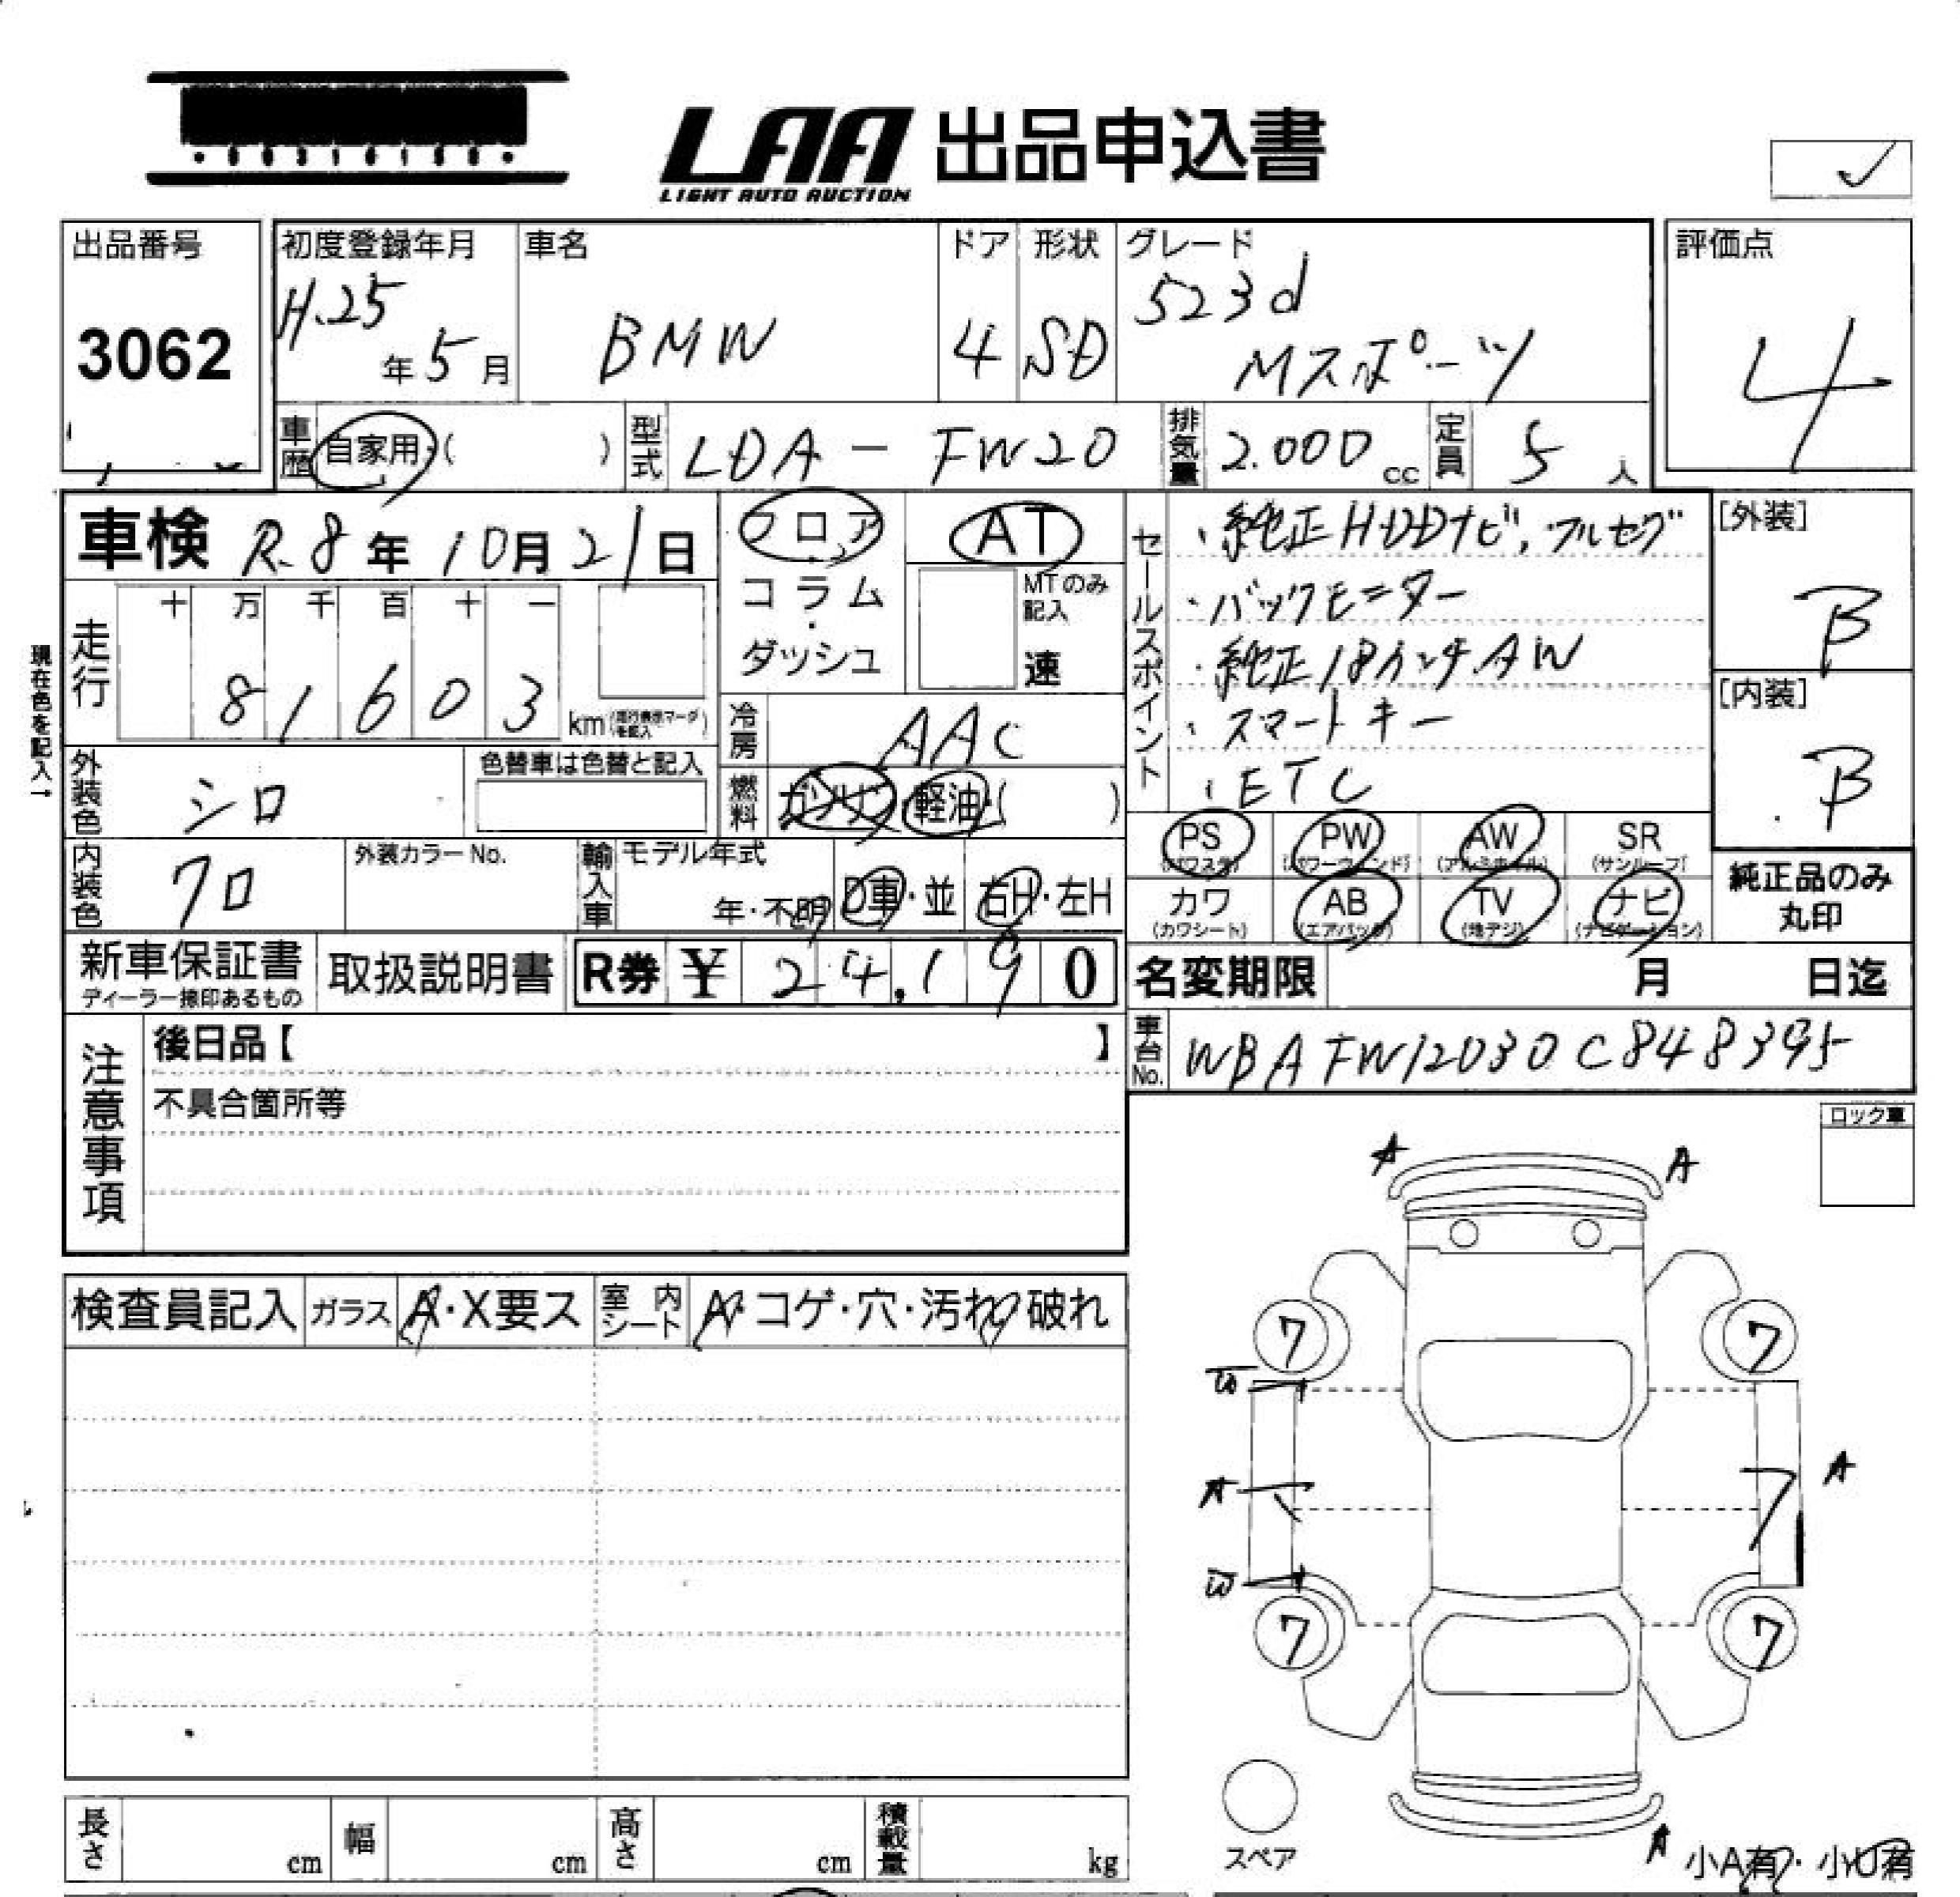 LAA 出品申込書
LIGHT AUTO AUCTION
✓
出品番号
3062
初度登録年月
H.25年5月
車名
BMW
ドア
4
形状
SD
グレード
523d
Mスポーツ
評価点
4
車歴 自家用・( )
型式 LDA-FW20
排気量 2.000 cc
定員 5 人
車検 R.8年10月21日
フロア
・
コラム
・
ダッシュ
AT
MTのみ
記入
速
走行
十 万 千 百 十 一
8 1 6 0 3 km
現在色を記入→
外装色 シロ
色替車は色替と記入
内装色 クロ
外装カラーNo.
冷房 AAC
燃料 ガソリン・軽油・( )
輸入車 モデル年式
年・不明
D車・並
右H・左H
セールスポイント
・純正HDDナビ,フルセグ
・バックモニター
・純正18インチAW
・スマートキー
・ETC
[外装]
B
[内装]
B
PS
(パワステ)
PW
(パワーウィンド)
AW
(アルミホイル)
SR
(サンルーフ)
カワ
(カワシート)
AB
(エアバック)
TV
(地デジ)
ナビ
(ナビゲーション)
純正品のみ
丸印
新車保証書
ディーラー捺印あるもの
取扱説明書
R券 ¥ 24,190
名変期限 月 日迄
車台No. WBAFW12030C848395
注意事項
後日品【 】
不具合箇所等
ロック車
検査員記入
ガラス A・X要ス
室内シート A・コゲ・穴・汚れ・破れ
A
A
7
7
W
A
A
W
7
7
スペア
A
小A有・小U有
長さ cm
幅 cm
高さ cm
積載量 kg